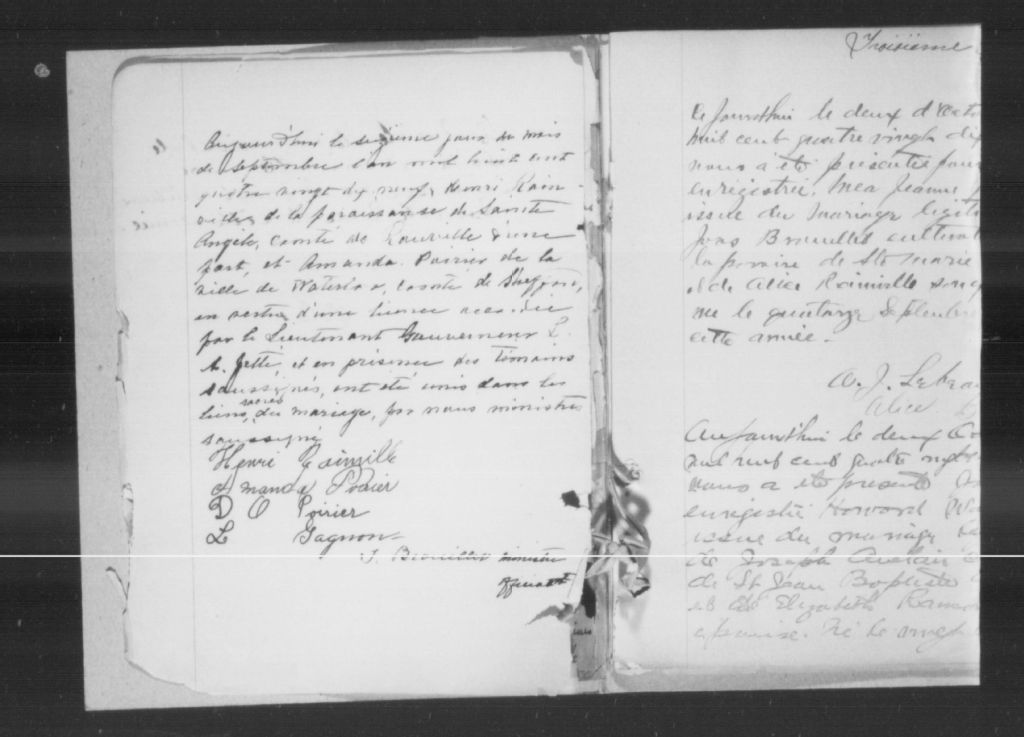 Aujourd'hui le sixième jour du mois
de Septembre l'an mil huit cent
quatre vingt dix neuf, Henri Rain-
ville, de la paroisse de Sainte
Angèle, comté de Rouville d'une
part, et Amanda Poirier de la
ville de Waterloo, comté de Shefford,
en vertu d'une licence accordée
par le Lieutenant Gouverneur L.
A. Jetté, et en présence des témoins
soussignés, ont été unis dans les
liens sacrés du mariage, par nous ministre
soussigné
Henri Rainville
Amanda Poirier
D O Poirier
L Gagnon
Brouillet ministre
Troisième
Aujourdhui le deux d'Octo
huit cent quatre vingt dix
nous a été présentée pour
enregistrée. Mea Jeanne
issue du mariage légiti
Brouillet cultivat
la paroisse de Ste Marie
et de Alice Rainville son
née le quatorze Septembre
cette année.
A. J.
Alice
Aujourdhui le deux Oc
mil huit cent quatre vingt
nous a été présenté
enregistré Howard
issue du mariage
de Joseph
de St Jean Baptiste
et de Elizabeth
épouse. Né le vingt